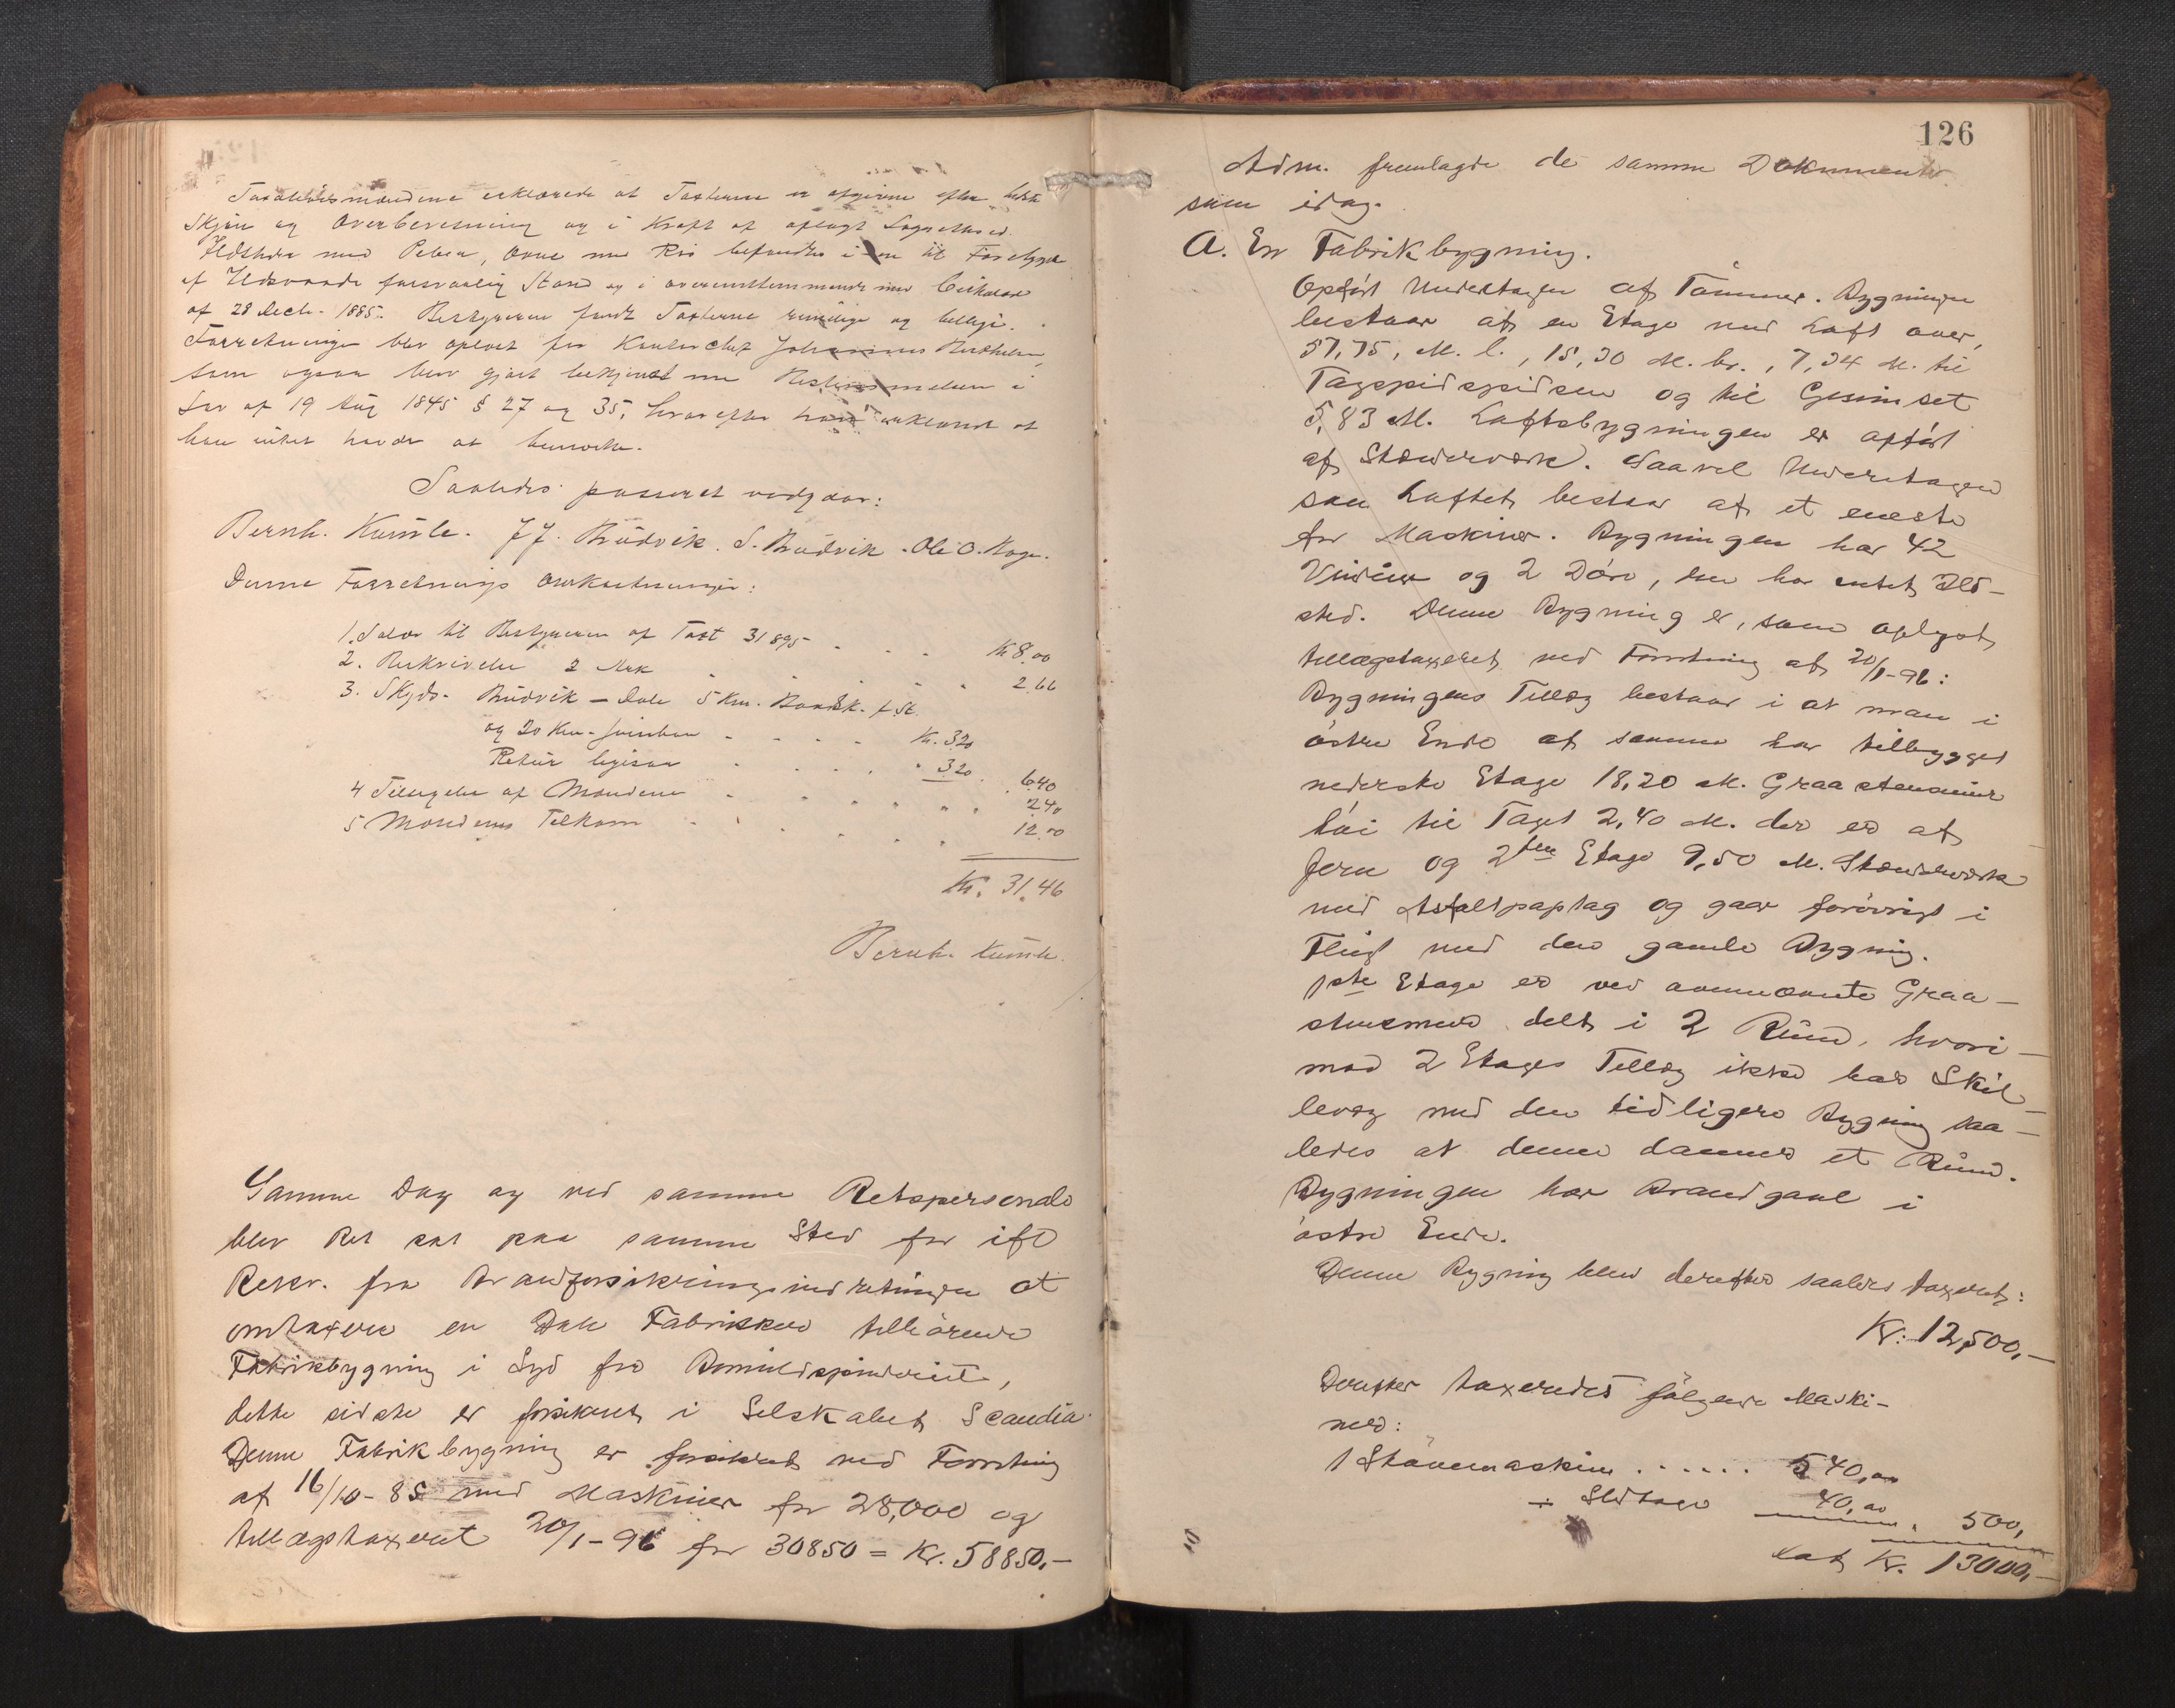 Taxationsmændene erklærede at Taxterne er afgivne efter bedste
Skjøn og Overbevisning og i Kraft af aflagt Lagrettesed.
Ildsteder med Piber, Ovne med Rør befandtes i en til Forebyggelse
af Ildsvaade forsvarlig Stand og i overensstemmende med Cirkulære
af 28 Decbr. 1885. Bestyreren fandt Taxterne rimelige og billige.
Forretningen blev oplæst for Kontorchef Johannes Berthelsen,
som ogsaa blev gjort bekjendt med Bestemmelsen i
Lov af 19 Aug 1845 § 27 og 35, hvorefter han erklærede at
han intet havde at bemærke.
Saaledes passeret vedgaar:
Bernh. Kumle. J J. Brudvik. S. Brudvik. Ole O. Hage.
Denne Forretnings Omkostninger:
1. Salær til Bestyreren af Taxt 31895 . . . Kr 8,00
2. Beskrivelse 2 Ark . . . . . 2,66
3. Skyds. Brudvik – Dale 5 Km. Baadsk. f. St.
og 20 Km. . . . . Kr. 3,20
Retur ligesaa . . . . " 3,20 . 6,40
4 Tilsigelse af Mændene . . . . . . 2,40
5 Mændenes Tilkom . . . . . . 12,00
Kr. 31,46
Bernh. Kumle.
Samme Dag og ved samme Retspersonale
blev Ret sat paa samme Sted for ifl
Rekv. fra Brandforsikringsindretningen at
omtaxere en Dale Fabrikker tilhørende
Fabrikbygning i Syd fra Bomuldspinderiet,
dette sidste er forsikret i Selskabet Scandia.
Denne Fabrikbygning er forsikret ved Forretning
af 16/10-85 med Maskiner for 28,000 og
tillægstaxeret 20/1-96 for 30850 = Kr. 58850,–
126
Adm. fremlagde de samme Dokumenter
som idag.
A. En Fabrikbygning.
Opført Underetagen af Tømmer. Bygningen
bestaar af en Etage med Loft over,
57,75, M. l., 15,30 M. br., 7,34 M. til
Tagspidspidsen og til Gesimset
5,83 M. Loftsbygningen er opført
af Stænderværk. Saavel Underetagen
som Loftet bestaar af et eneste
for Maskiner. Bygningen har 42
Vinduer og 2 Døre, den har intet Ild-
sted. Denne Bygning er, som oplyst,
tillægstaxeret ved Forretning af 20/1-96:
Bygningens Tillæg bestaar i at man i
østre Ende af samme har tilbygget
nederste Etage 18,20 M. Graastensmur
høi til Taget 2,40 M. der er af
Jern og 2den Etage 9,50 M. Stænderværk
med Asfaltpaptag og gaar forøvrigt i
Flugt med den gamle Bygning.
1ste Etage er ved ovennævnte Graa-
stensmur delt i 2 Rum, hvori-
mod 2 Etages Tillæg ikke har Skil-
levæg med den tidligere Bygning saa-
ledes at denne danner et Rum.
Bygningen har Brandgavl i
østre Ende.
Denne Bygning blev derefter saaledes taxeret:
Kr. 12,500,–
Derefter taxeredes følgende Maski-
ner:
1 Skæremaskine . . . . . . 540,00
÷ Slitage 40,00 . 500,
Lat. Kr. 13000,–